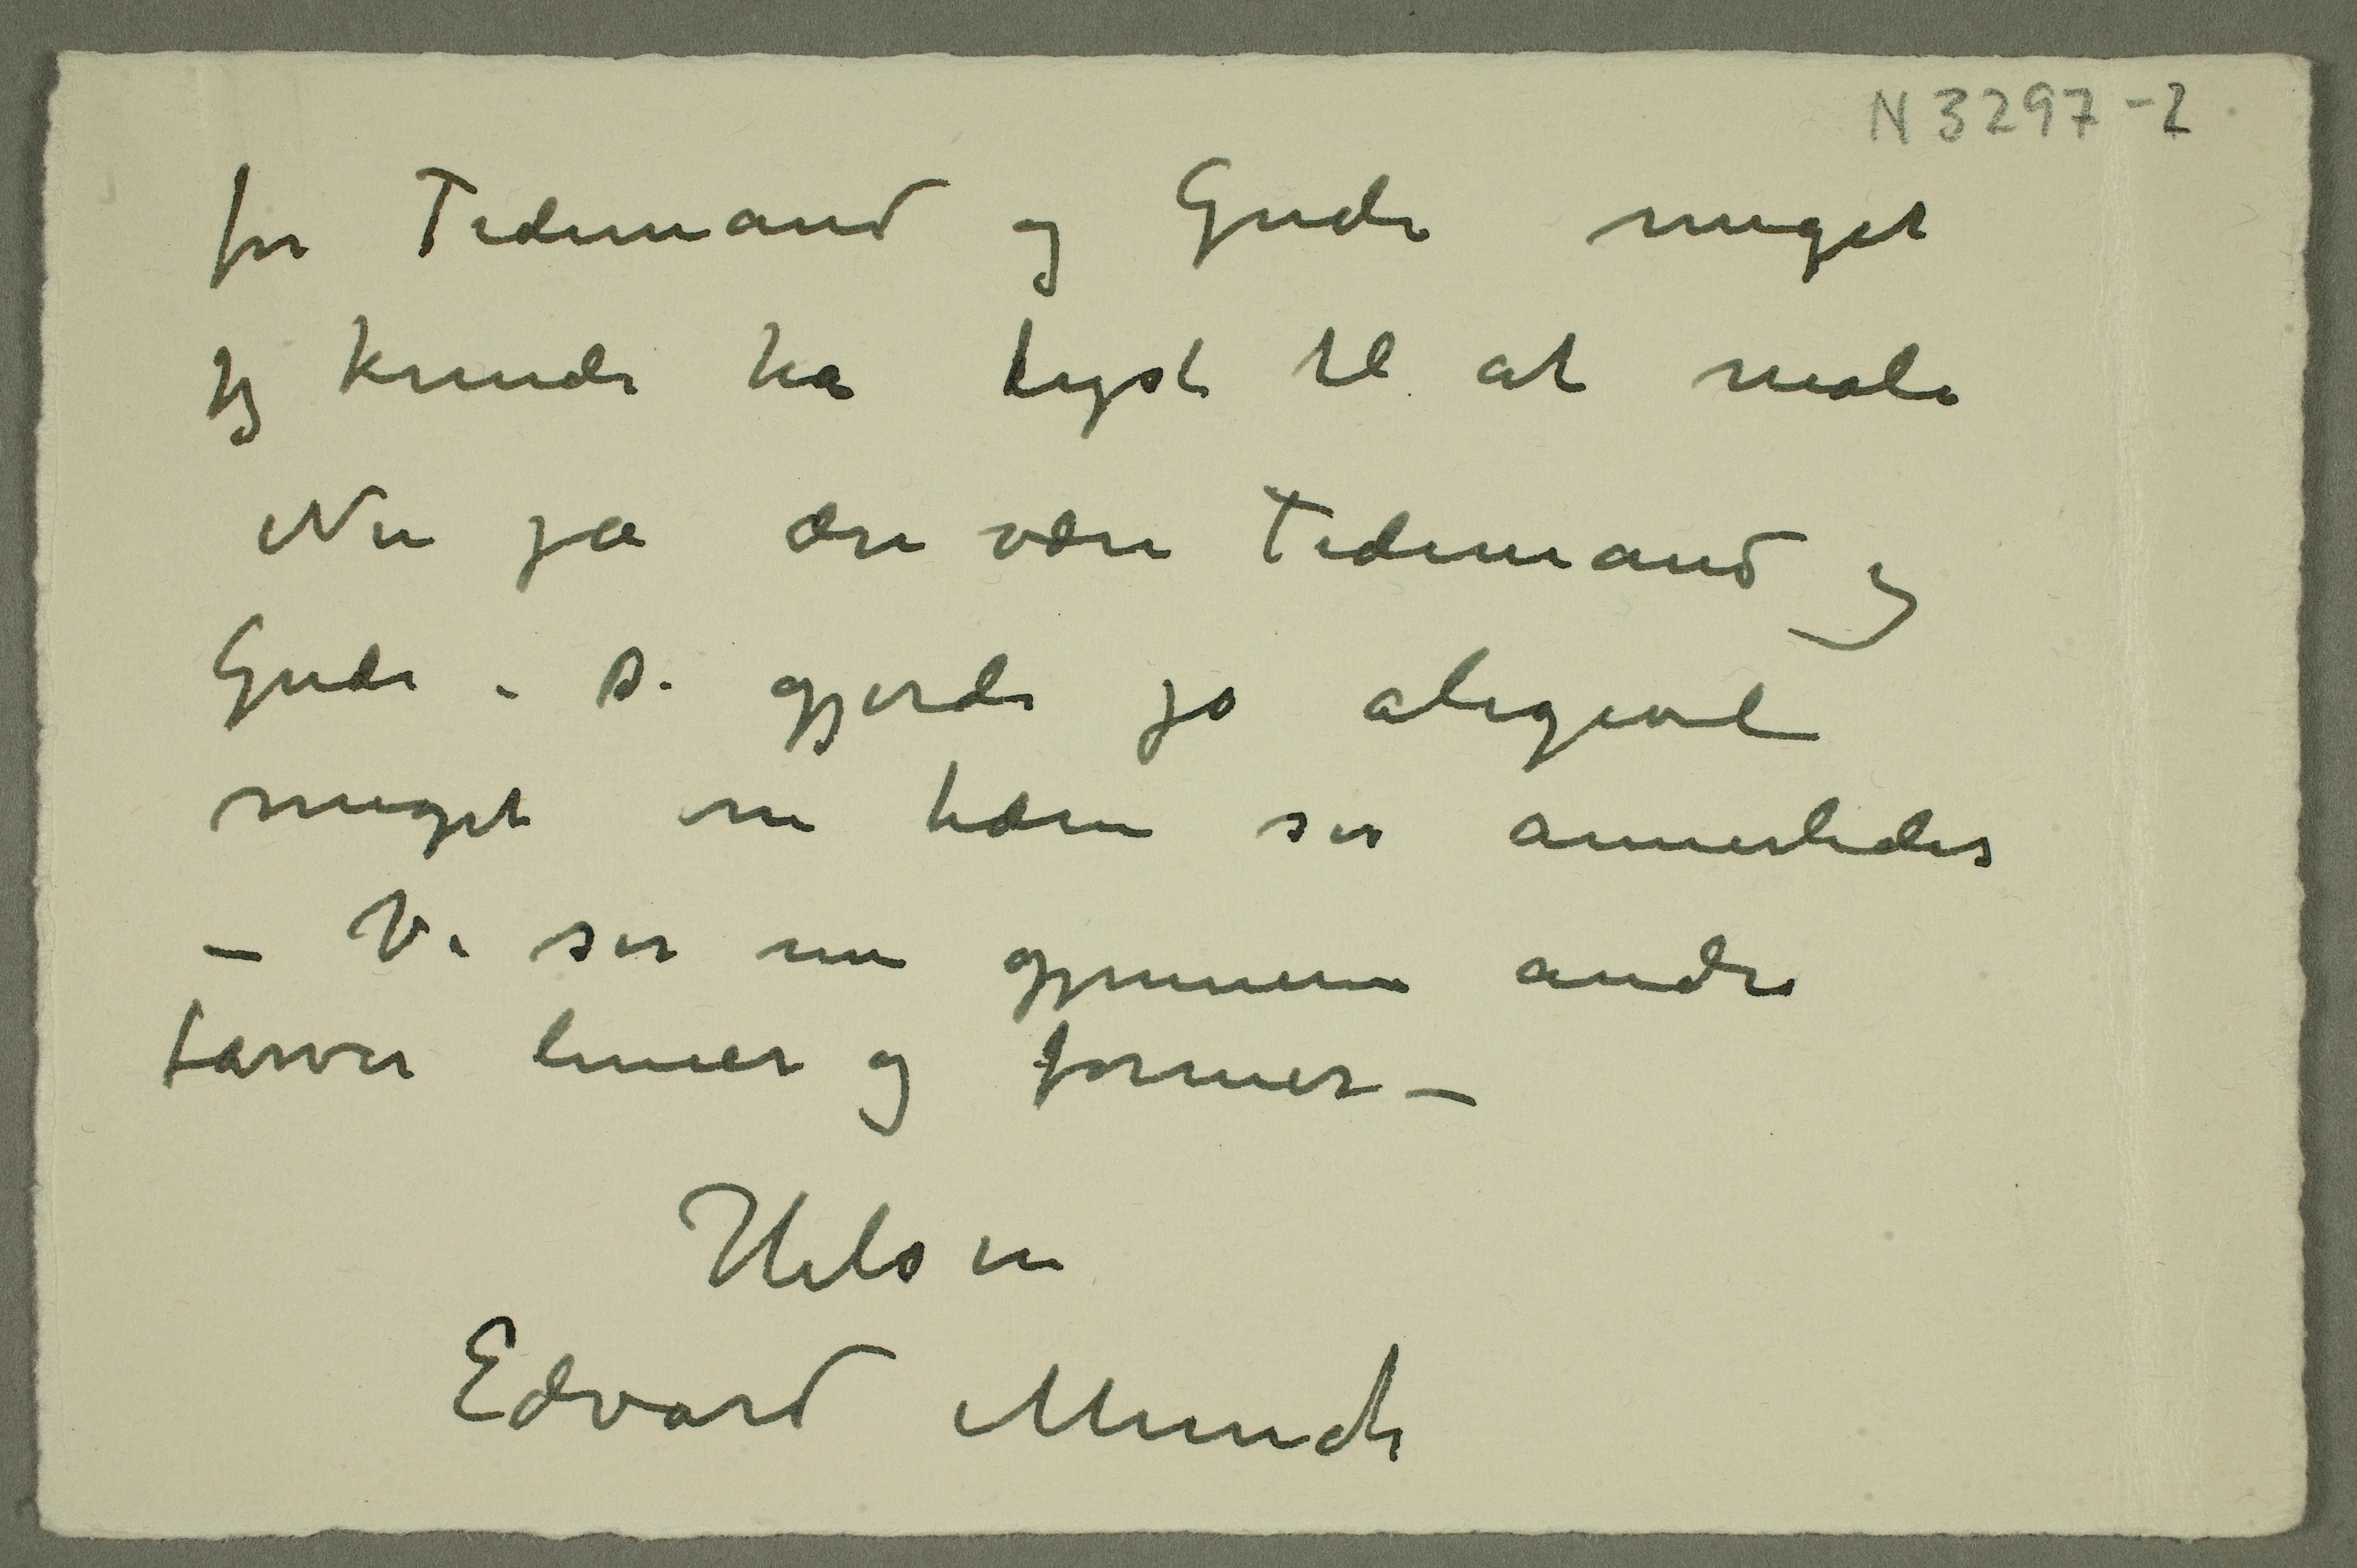 N 3297-2
for Tidemand og Gude meget
jeg kunde ha lyst til at male
Nu ja ære være Tidemand og
Gude. – De gjorde jo aligevel
meget om hæn ser annerledes
– Vi ser nu gjennem andre
farver linier og former –
Hilsen
Edvard Munch